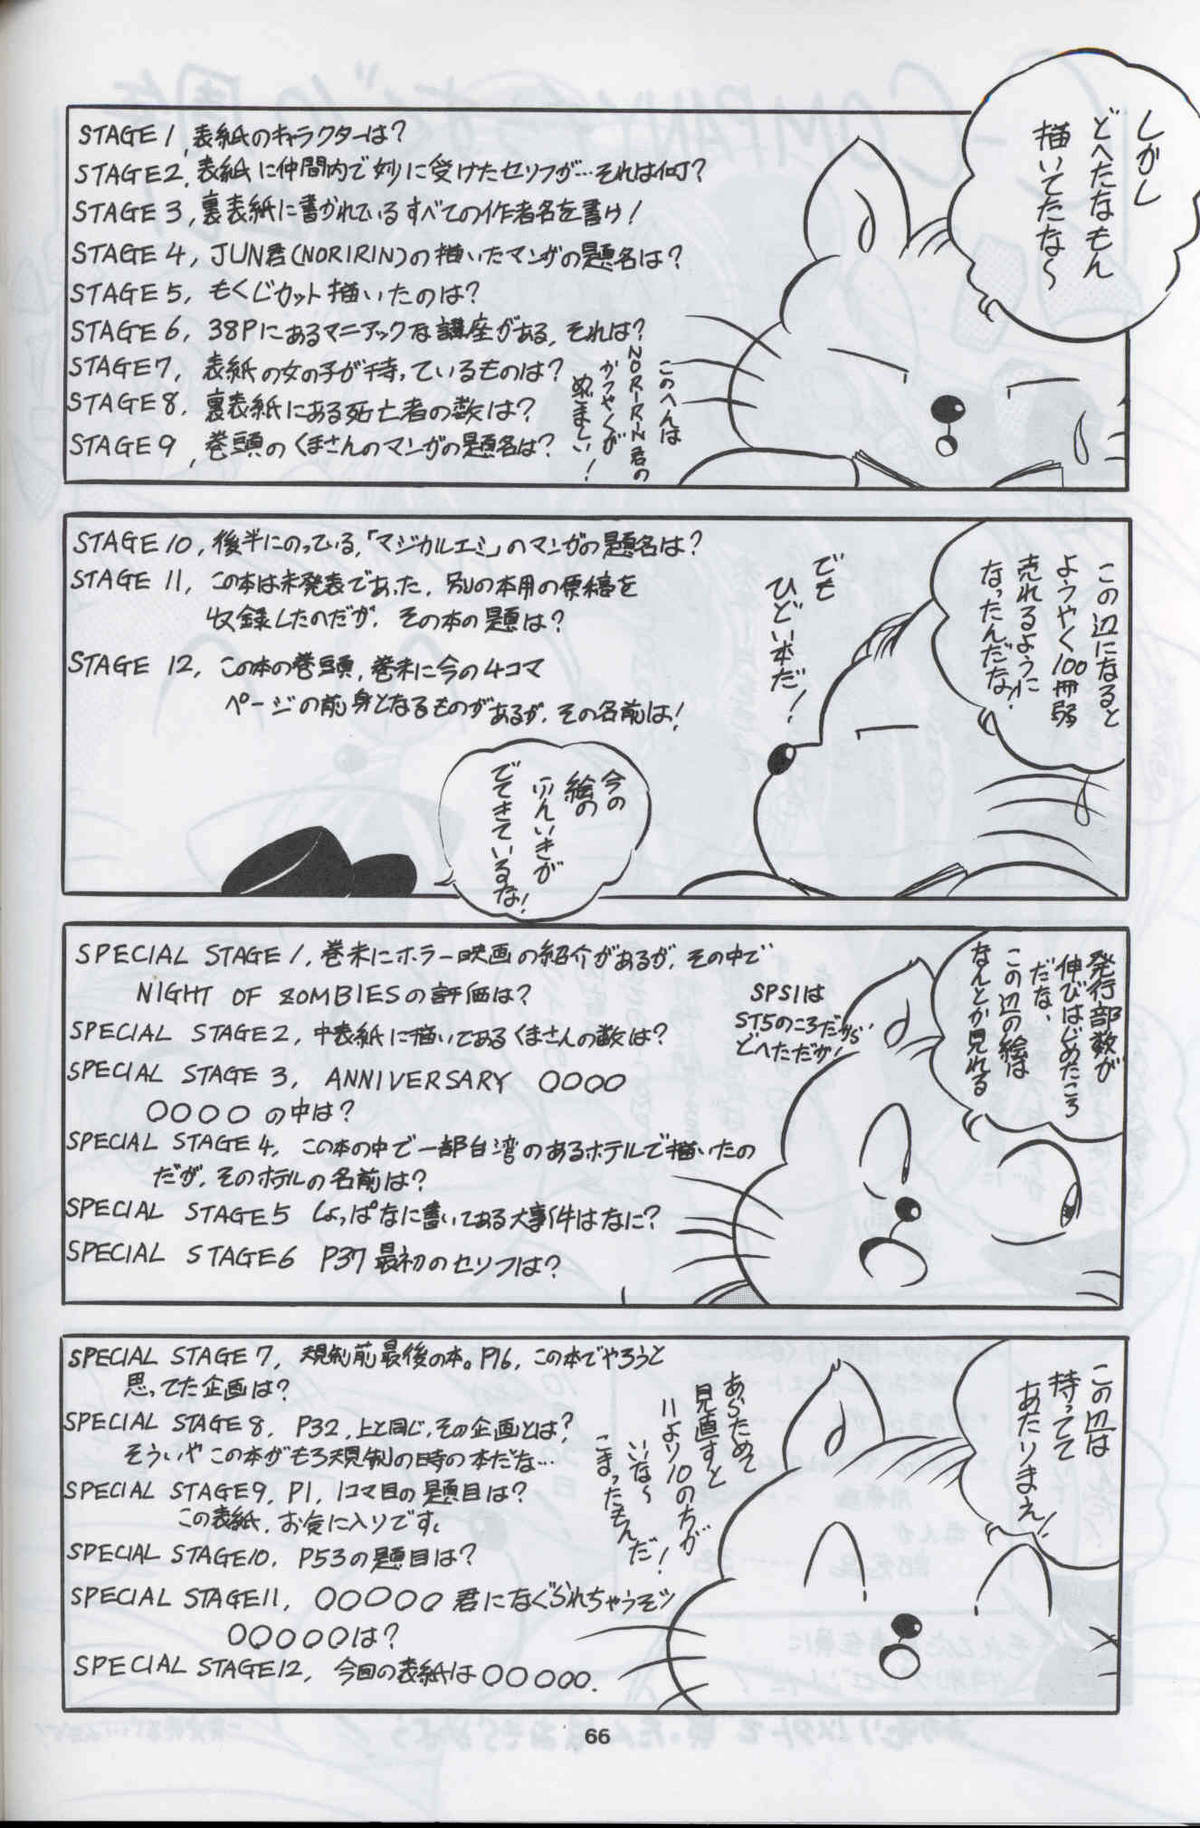 しかし
どへたなもん
描いてたな〜
STAGE 1, 表紙のキャラクターは?
STAGE 2, 表紙に仲間内で妙に受けたセリフが…それは何?
STAGE 3, 裏表紙に書かれているすべての作者名を書け!
STAGE 4, JUN君(NORIRIN)の描いたマンガの題名は?
STAGE 5, もくじカット描いたのは?
STAGE 6, 38Pにあるマニアックな講座がある, それは?
STAGE 7, 表紙の女の子が持っているものは?
STAGE 8, 裏表紙にある死亡者の数は?
STAGE 9, 巻頭のくまさんのマンガの題名は?
このへんは
NORIRIN君の
かつやくが
めざましい!
この辺になると
ようやく100冊弱
売れるように
なったんだな!
でも
ひどい本だ!
STAGE 10, 後半にのっている,「マジカルエミ」のマンガの題名は?
STAGE 11, この本は未発表であった, 別の本用の原稿を
収録したのだが, その本の題は?
STAGE 12, この本の巻頭, 巻末に今の4コマ
ページの前身となるものがあるが, その名前は!
今の
絵の
ふんいきが
でてきているな!
発行部数が
伸びはじめたころ
だな,
この辺の絵は
なんとか見れる
SPECIAL STAGE 1, 巻末にホラー映画の紹介があるが, その中で
NIGHT OF ZOMBIESの評価は?
SPS1は
ST5のころだから
どへただが!
SPECIAL STAGE 2, 中表紙に描いてあるくまさんの数は?
SPECIAL STAGE 3, ANNIVERSARY ○○○○
○○○○の中は?
SPECIAL STAGE 4, この本の中で一部台湾のあるホテルで描いたの
だが, そのホテルの名前は?
SPECIAL STAGE 5 しょっぱなに書いてある大事件はなに?
SPECIAL STAGE 6 P37最初のセリフは?
この辺は
持ってて
あたりまえ!
あらためて
見直すと
11より10のちが
いな〜
こまったもんだ!
SPECIAL STAGE 7, 規制前最後の本。P16, この本でやろうと
思ってた企画は?
SPECIAL STAGE 8, P32, 上と同じ, その企画とは?
そういやこの本がもろ規制の時の本だな…
SPECIAL STAGE 9, P1, 1コマ目の題目は?
この表紙, お気に入りです。
SPECIAL STAGE 10, P53の題目は?
SPECIAL STAGE 11, ○○○○○君になぐられちゃうぞッ
○○○○○は?
SPECIAL STAGE 12, 今回の表紙は○○○○○.
66